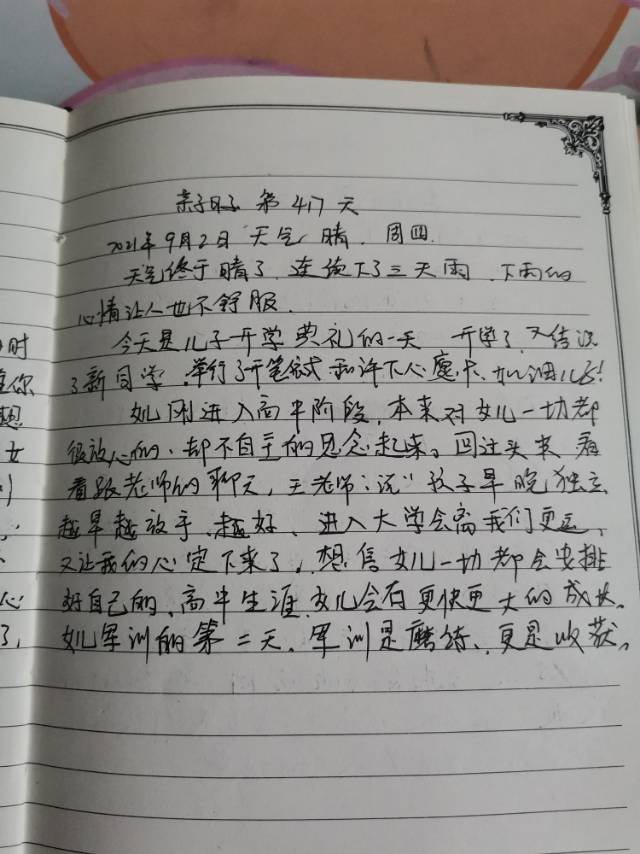 亲子日子 第417天
2021年9月2日 天气 晴. 周四.
天气终于晴了. 连续下了三天雨. 下雨的
心情让人也不舒服.
今天是儿子开学典礼的一天 开学了, 又结识
了新同学, 举行了开笔仪式和许下心愿卡. 加油儿子!
女儿刚进入高中阶段, 本来对女儿一切都
很放心的. 却不自主的思念起来。回过头来看
看跟老师的聊天, 王老师:说"孩子早晚独立
越早越放手、越好、进入大学会离我们更远,
又让我的心定下来了, 想信女儿一切都会安排
好自己的、高中生涯, 女儿会有更快更大的成长.
女儿军训的第二天. 军训是磨练、更是收获。
时
你
想
女
心
了,